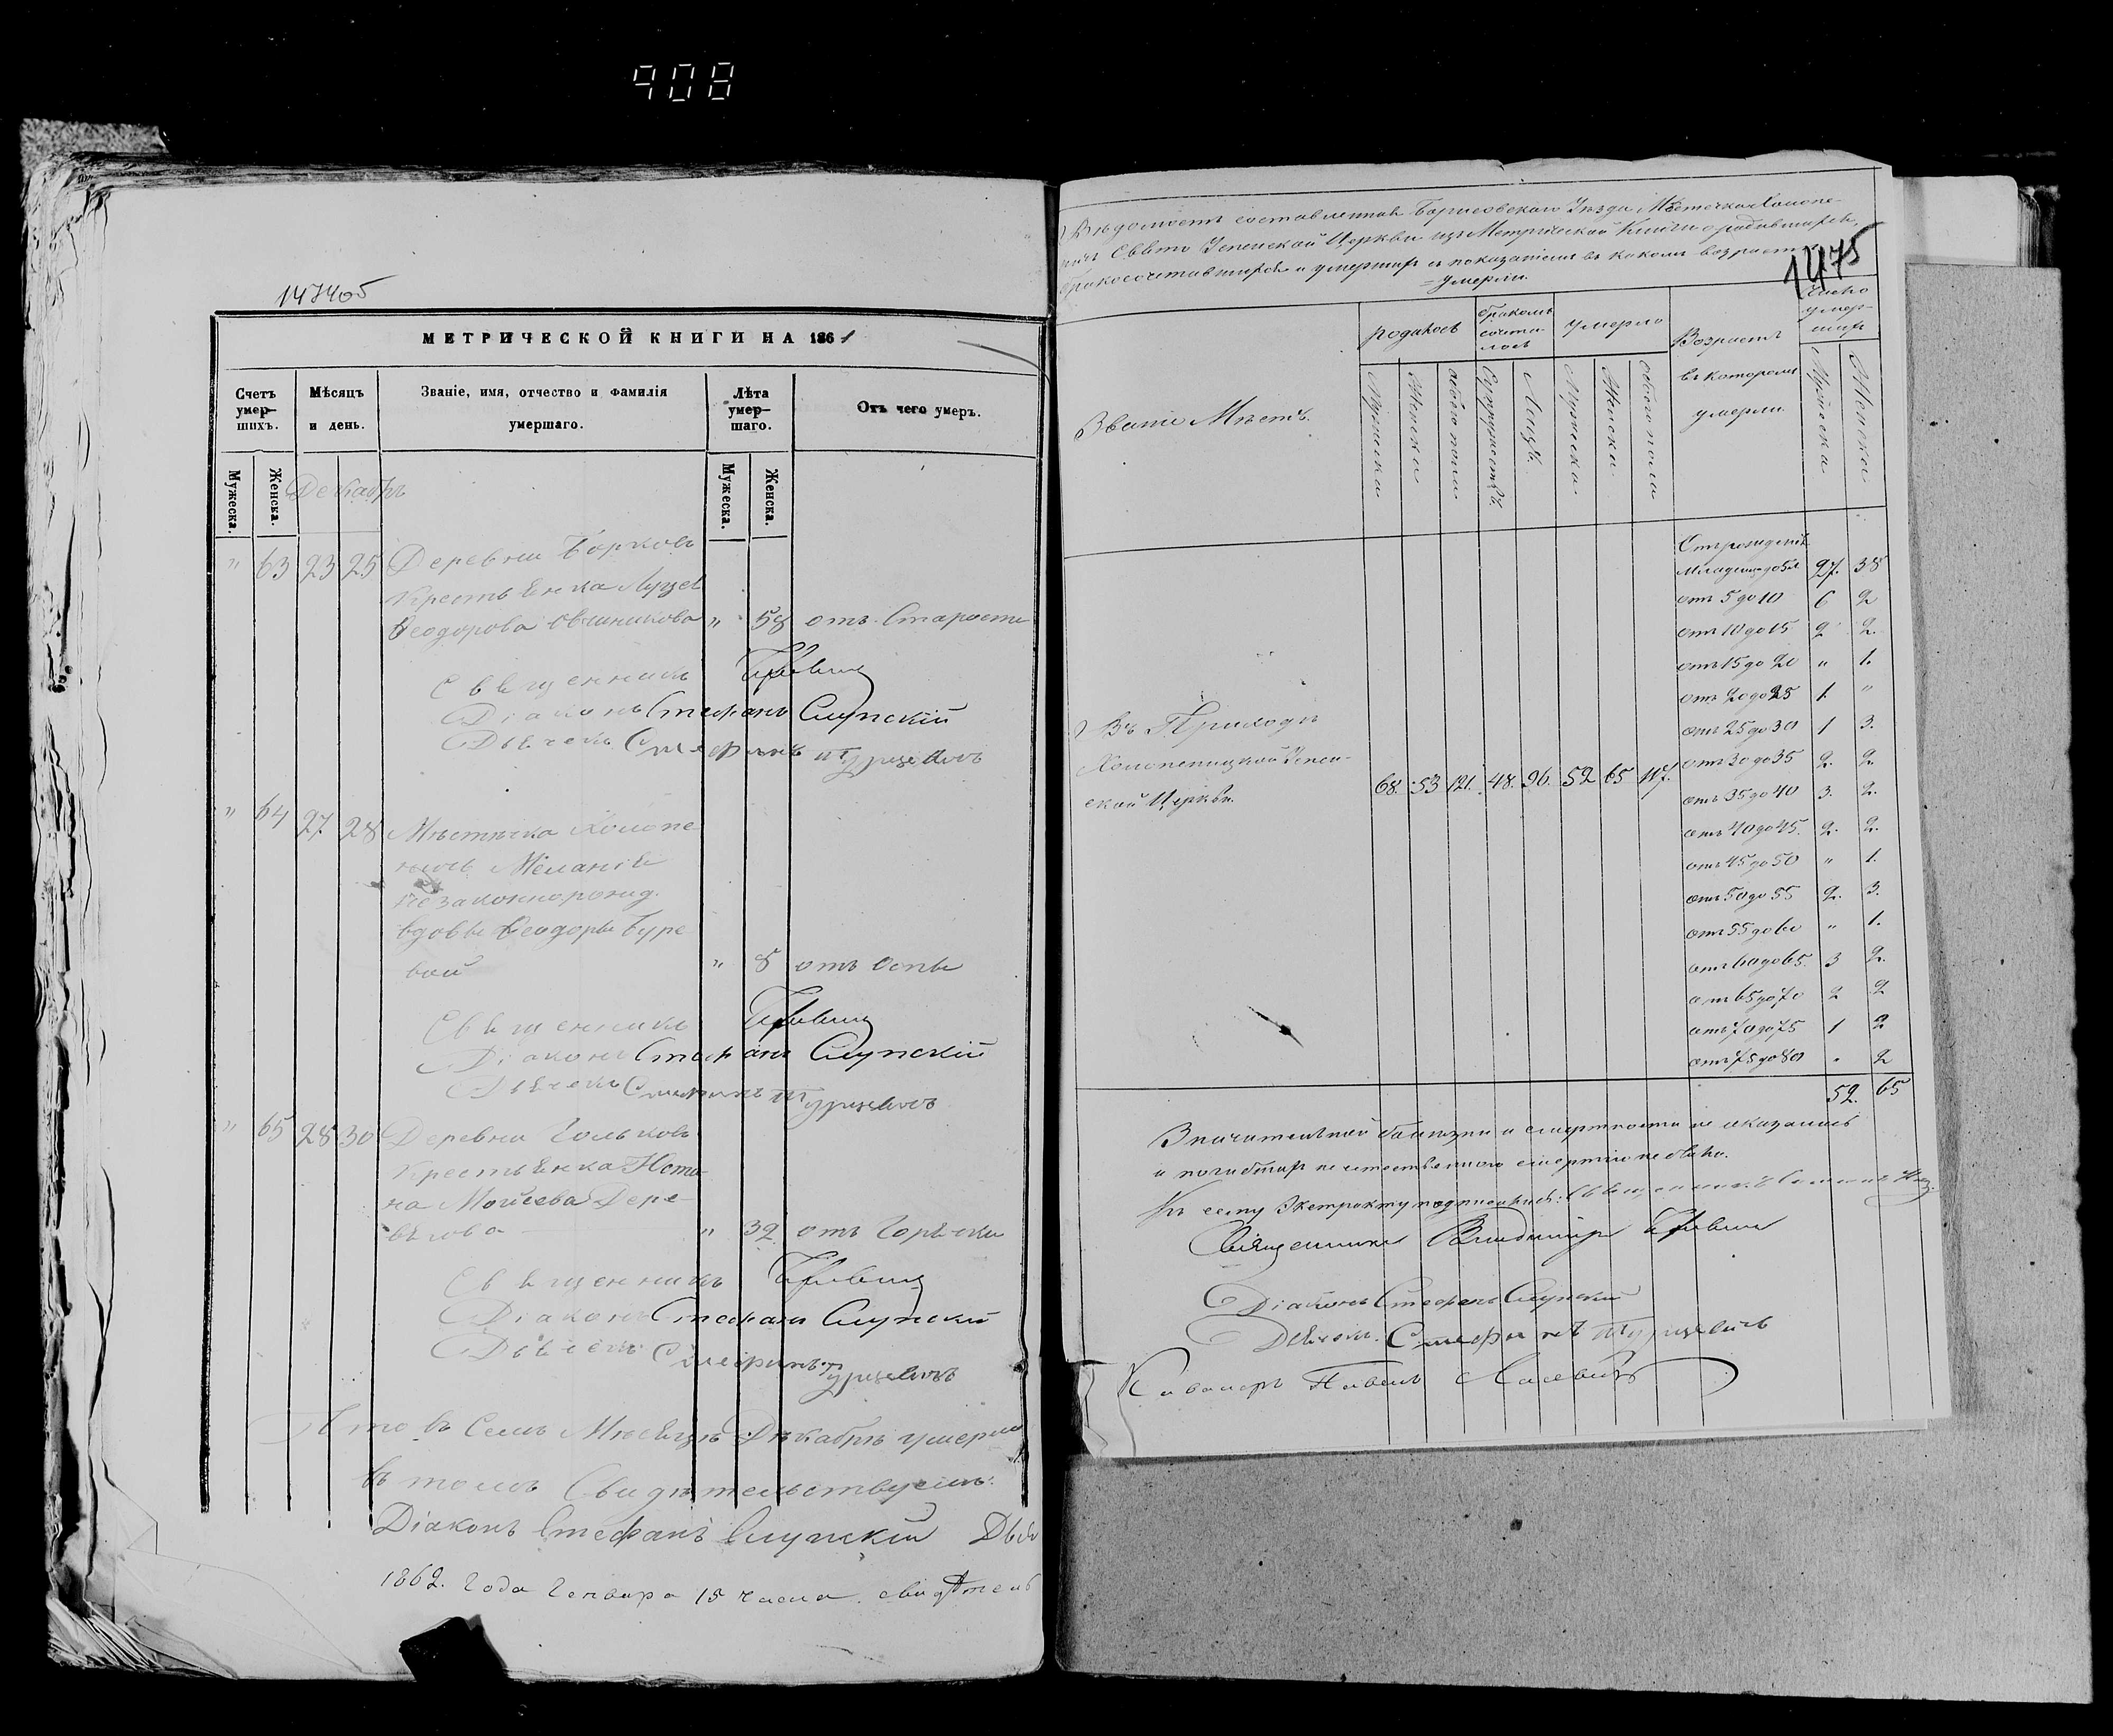 908
147405
МЕТРИЧЕСКОЙ КНИГИ НА 1861
Счетъ умер-шихъ.
Мѣсяцъ и день.
Званіе, имя, отчество и фамилія умершаго.
Лѣта умер-шаго.
Отъ чего умеръ.
Мужеска.
Женска.
Мужеска.
Женска.
Декабрь
" 63 23 25 Деревни
Крестьенка
Феодорова " 58 отъ Старости
Священникъ
Діаконъ Стефанъ Слупскій
Дьячекъ Стефанъ Турцевичъ
" 64 27 28 Мѣстечка Холопе-
ничъ Меланія
незаконнорожд.
вдовы Феодоры Буре
вой " 5 отъ Оспы
Священникъ
Діаконъ Стефанъ Слупскій
Дьячекъ Стефанъ Турцевичъ
" 65 28 30 Деревни
Крестьенка
на Мойсеева Дере-
" 32 отъ Горячки
Священникъ
Діаконъ Стефанъ Слупскій
Дьячекъ Стефанъ Турцевичъ
Что въ Семъ Мѣсяцѣ Декабрѣ умерли
въ томъ Свидѣтельствуемъ:
Діаконъ Стефанъ Слупскій
1862. Года Генвара 15 числа свидѣтель
1475
Вѣдомость составленная Борисовскаго Уѣзда Мѣстечка Холопе-
ничъ Свято Успенской Церкви изъ Метрической Книги о родившихся,
бракосочетавшихся и умершихъ съ показаніемъ въ какомъ возрастѣ
умерли.
Званіе Мѣстъ.
родилось
бракомъ сочета-лось
умерло
Возрастъ въ которомъ умерли.
Число умер-шихъ
Мужеска
Женска
обоего пола
Супружествъ.
Лицъ.
Мужеска
Женска
обоего пола
Мужеска
Женска
Въ Приходѣ
Холопеницкой Успен-
ской Церкви.
68. 53 121. 48. 96. 52 65 117.
Отъ рожденія
Младенц. до 5 л. 27. 38
отъ 5 до 10 6 2
отъ 10 до 15 2 2.
отъ 15 до 20 " 1.
отъ 20 до 25 1. "
отъ 25 до 30 1 3.
отъ 30 до 35 2. 2.
отъ 35 до 40 3. 2.
отъ 40 до 45. 2. 2.
отъ 45 до 50 " 1.
отъ 50 до 55 2. 3.
отъ 55 до 60 " 1.
отъ 60 до 65. 3 2.
отъ 65 до 70 2 2
отъ 70 до 75 1 2
отъ 75 до 80 " 2
52. 65
Значительной болѣзни и смертности не оказалось
и погибшихъ не естественною смертію не было.
Къ сему Экстракту подписались:
Священникъ Владиміръ
Діаконъ Стефанъ Слупскій
Дьячекъ Стефанъ Турцевичъ
Павелъ